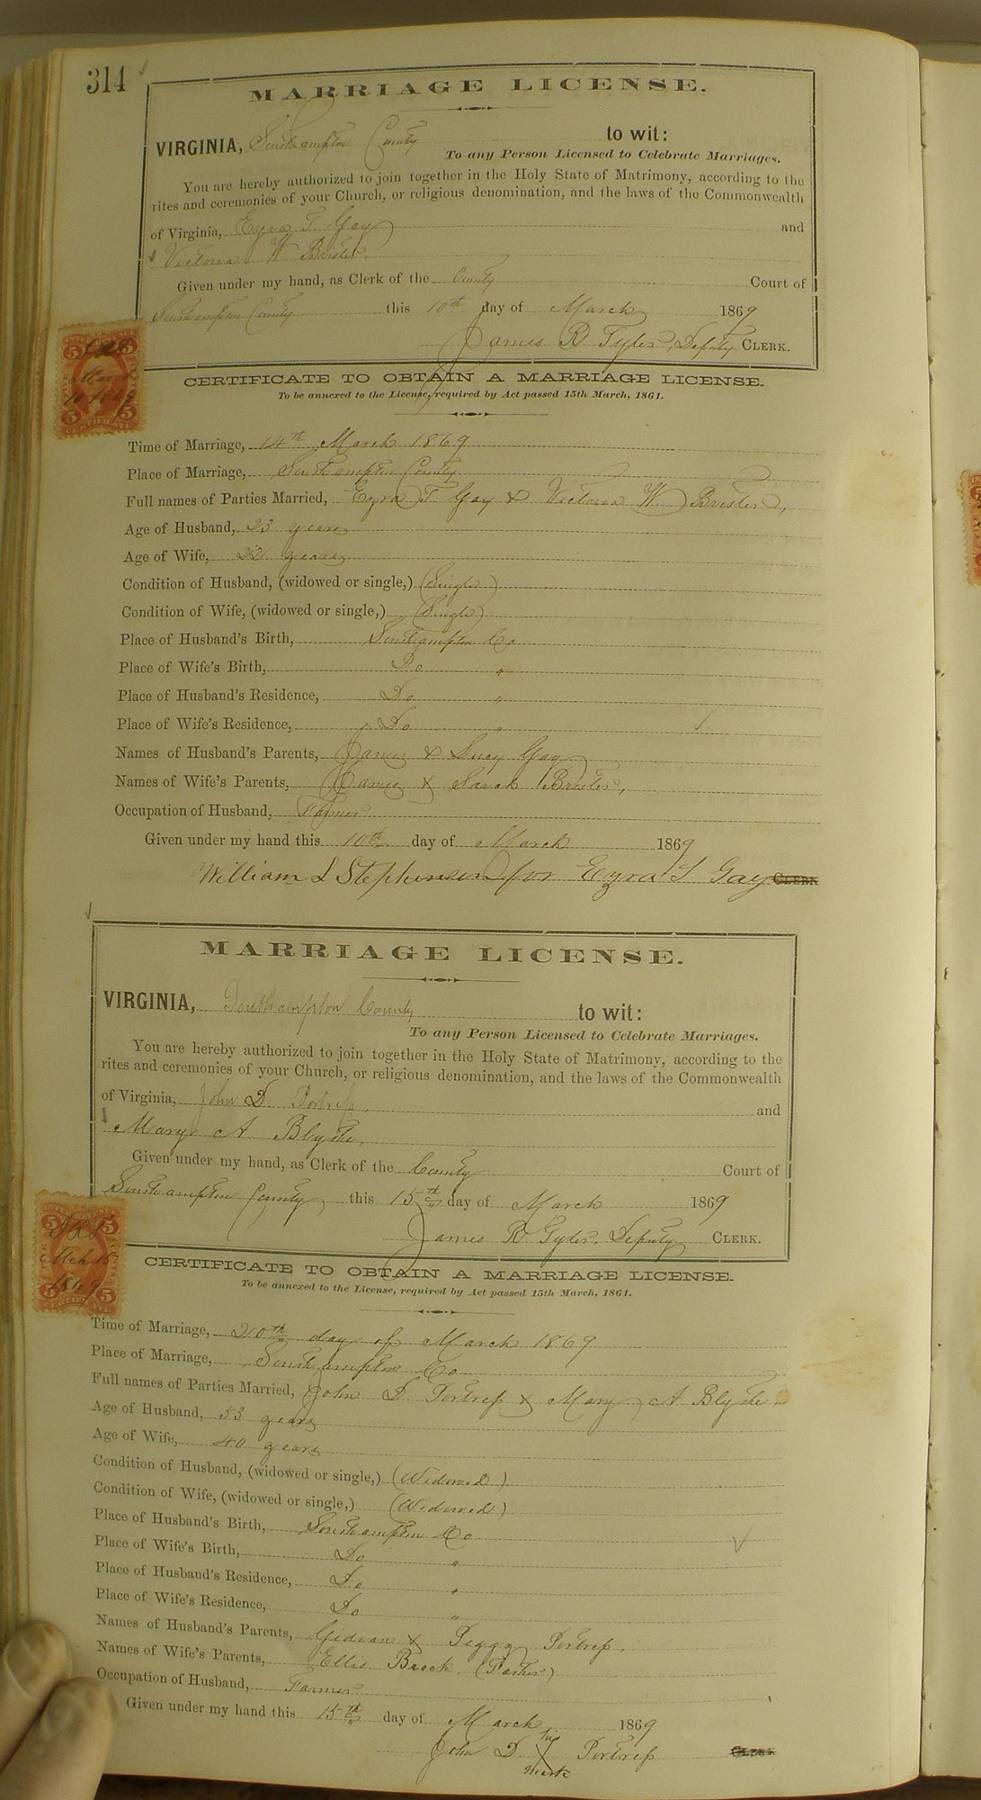 314
MARRIAGE LICENSE.
VIRGINIA, Southampton County to wit:
To any Person Licensed to Celebrate Marriages.
You are hereby authorized to join together in the Holy State of Matrimony, according to the
rites and ceremonies of your Church, or religious denomination, and the laws of the Commonwealth
of Virginia, Ezra T. Gay and
Victoria W Brister.
Given under my hand, as Clerk of the County Court of
Southampton County this 10th day of March 1869
James R Tyler, Deputy CLERK.
CERTIFICATE TO OBTAIN A MARRIAGE LICENSE.
To be annexed to the License, required by Act passed 15th March, 1861.
March
10 1869
Time of Marriage, 14th March 1869
Place of Marriage, Southampton County
Full names of Parties Married, Ezra T Gay & Victoria W Brister,
Age of Husband, 23 years
Age of Wife, 22 years
Condition of Husband, (widowed or single,) (Single)
Condition of Wife, (widowed or single,) (Single)
Place of Husband's Birth, Southampton Co
Place of Wife's Birth, Do "
Place of Husband's Residence, Do "
Place of Wife's Residence, Do "
Names of Husband's Parents, James & Lucy Gay
Names of Wife's Parents, James & Sarah Brister,
Occupation of Husband, Farmer
Given under my hand this 10th day of March 1869
William L Stephenson for Ezra T Gay CLERK
MARRIAGE LICENSE.
VIRGINIA, Southampton County to wit:
To any Person Licensed to Celebrate Marriages.
You are hereby authorized to join together in the Holy State of Matrimony, according to the
rites and ceremonies of your Church, or religious denomination, and the laws of the Commonwealth
of Virginia, John D Portress, and
Mary A Blythe,
Given under my hand, as Clerk of the County Court of
Southampton County this 15th day of March 1869
James R. Tyler, Deputy CLERK.
CERTIFICATE TO OBTAIN A MARRIAGE LICENSE.
To be annexed to the License, required by Act passed 15th March, 1861.
Mch 15
1869
Time of Marriage, 20th day of March 1869
Place of Marriage, Southampton Co
Full names of Parties Married, John D Portress & Mary A Blythe
Age of Husband, 53 years
Age of Wife, 40 years
Condition of Husband, (widowed or single,) (Widowed)
Condition of Wife, (widowed or single,) (Widowed)
Place of Husband's Birth, Southampton Co
Place of Wife's Birth, Do "
Place of Husband's Residence, Do "
Place of Wife's Residence, Do "
Names of Husband's Parents, Gidean & Peggy Portress.
Names of Wife's Parents, Ellis Brock (Father)
Occupation of Husband, Farmer
Given under my hand this 15th day of March 1869
his
John D. X Portress CLERK
mark